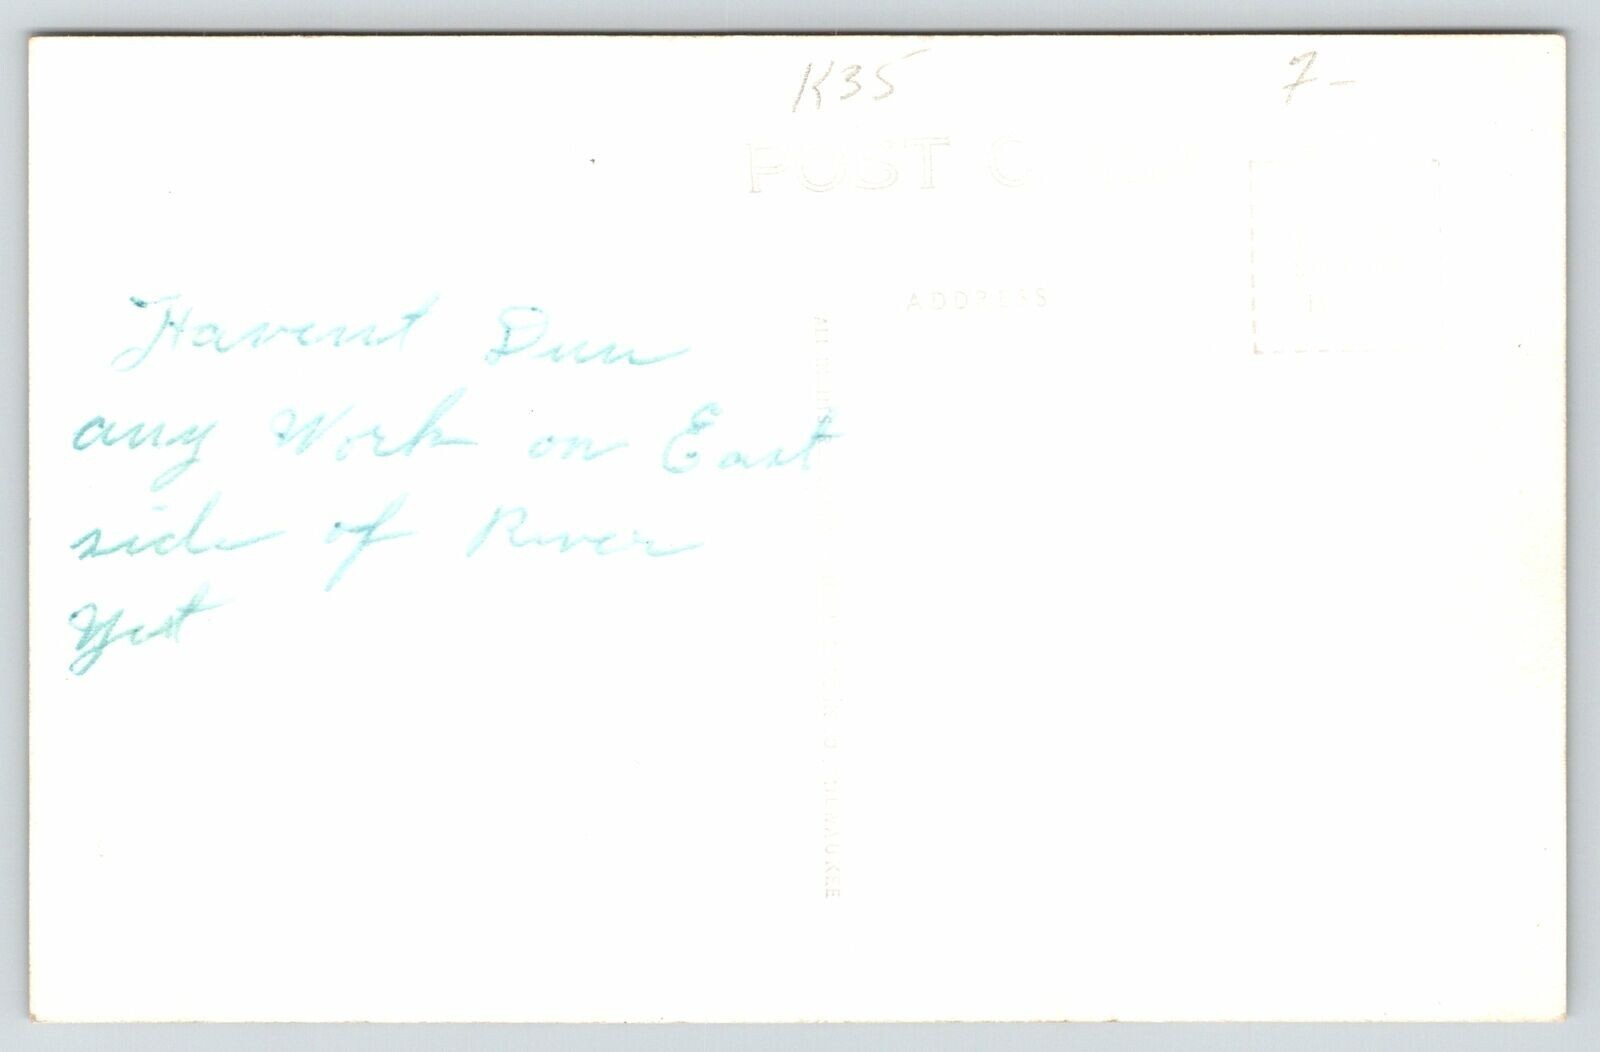 K35 7-
POST C
ADDRESS
Havent Dun
any Work on East
side of River
Yet